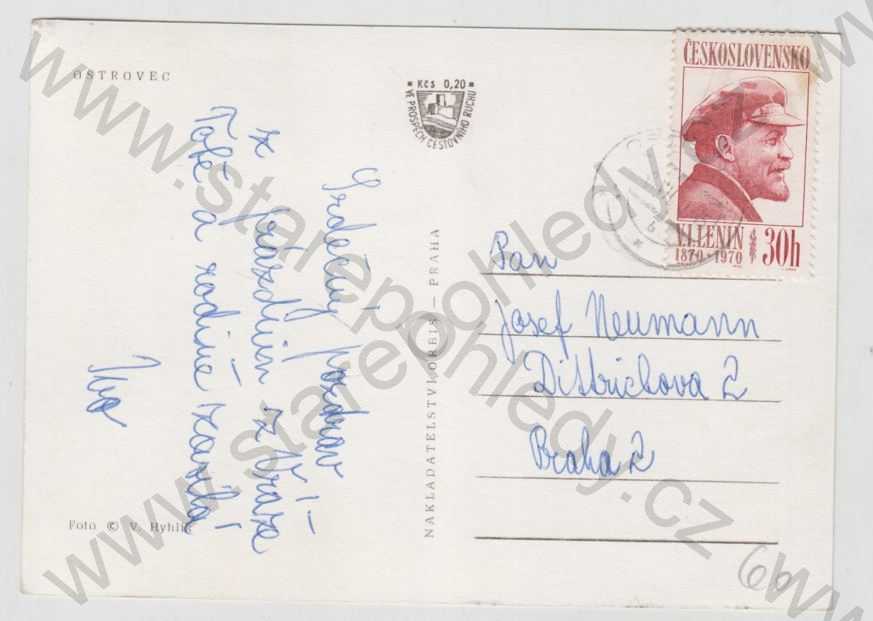 OSTROVEC
Kčs 0,20
VE PROSPĚCH CESTOVNÍHO RUCHU
ČESKOSLOVENSKO
V.I.LENIN
1870 • 1970
30h
Srdečný pozdrav
z prázdnin z
Tobě a rodině zasílá
Iva
NAKLADATELSTVÍ ORBIS — PRAHA
Pan
Josef Neumann
Dittrichova 2
Praha 2
Foto © V. Hyhlík
60
www.starepohledy.cz